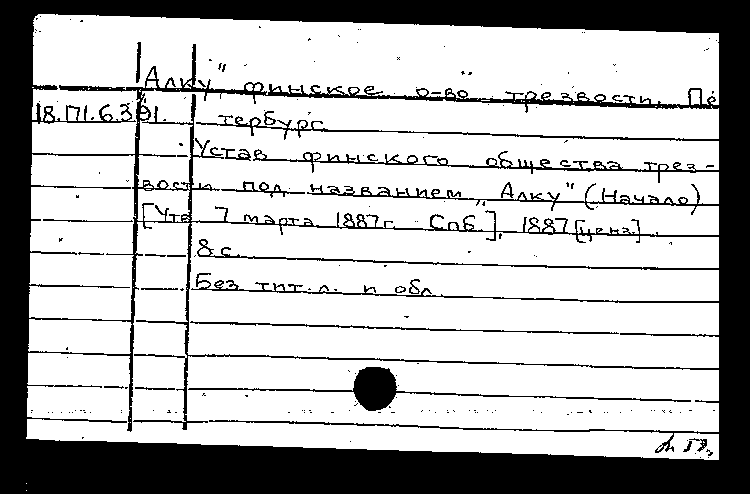 Алку" финское о-во трезвости. Пе
18.171.6.391. тербург.
Устав финского общества трез-
вости под названием „Алку" (Начало)
[Утв 7 марта 1887г. Спб.], 1887 [ценз.]
8 с.
Без тит. л. и обл